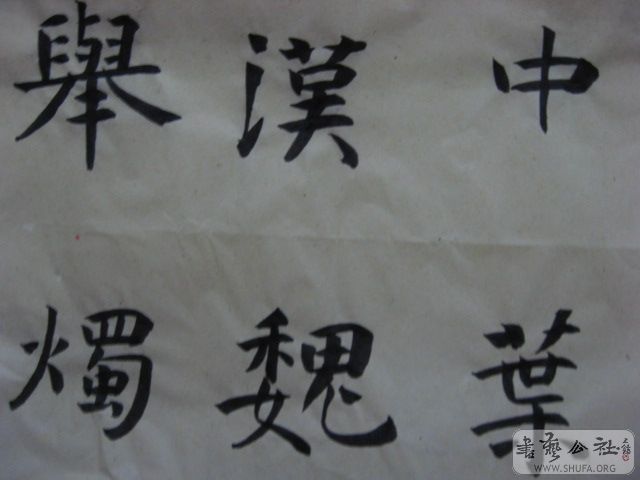 中葉
漢魏
舉燭
書藝公社
WWW.SHUFA.ORG